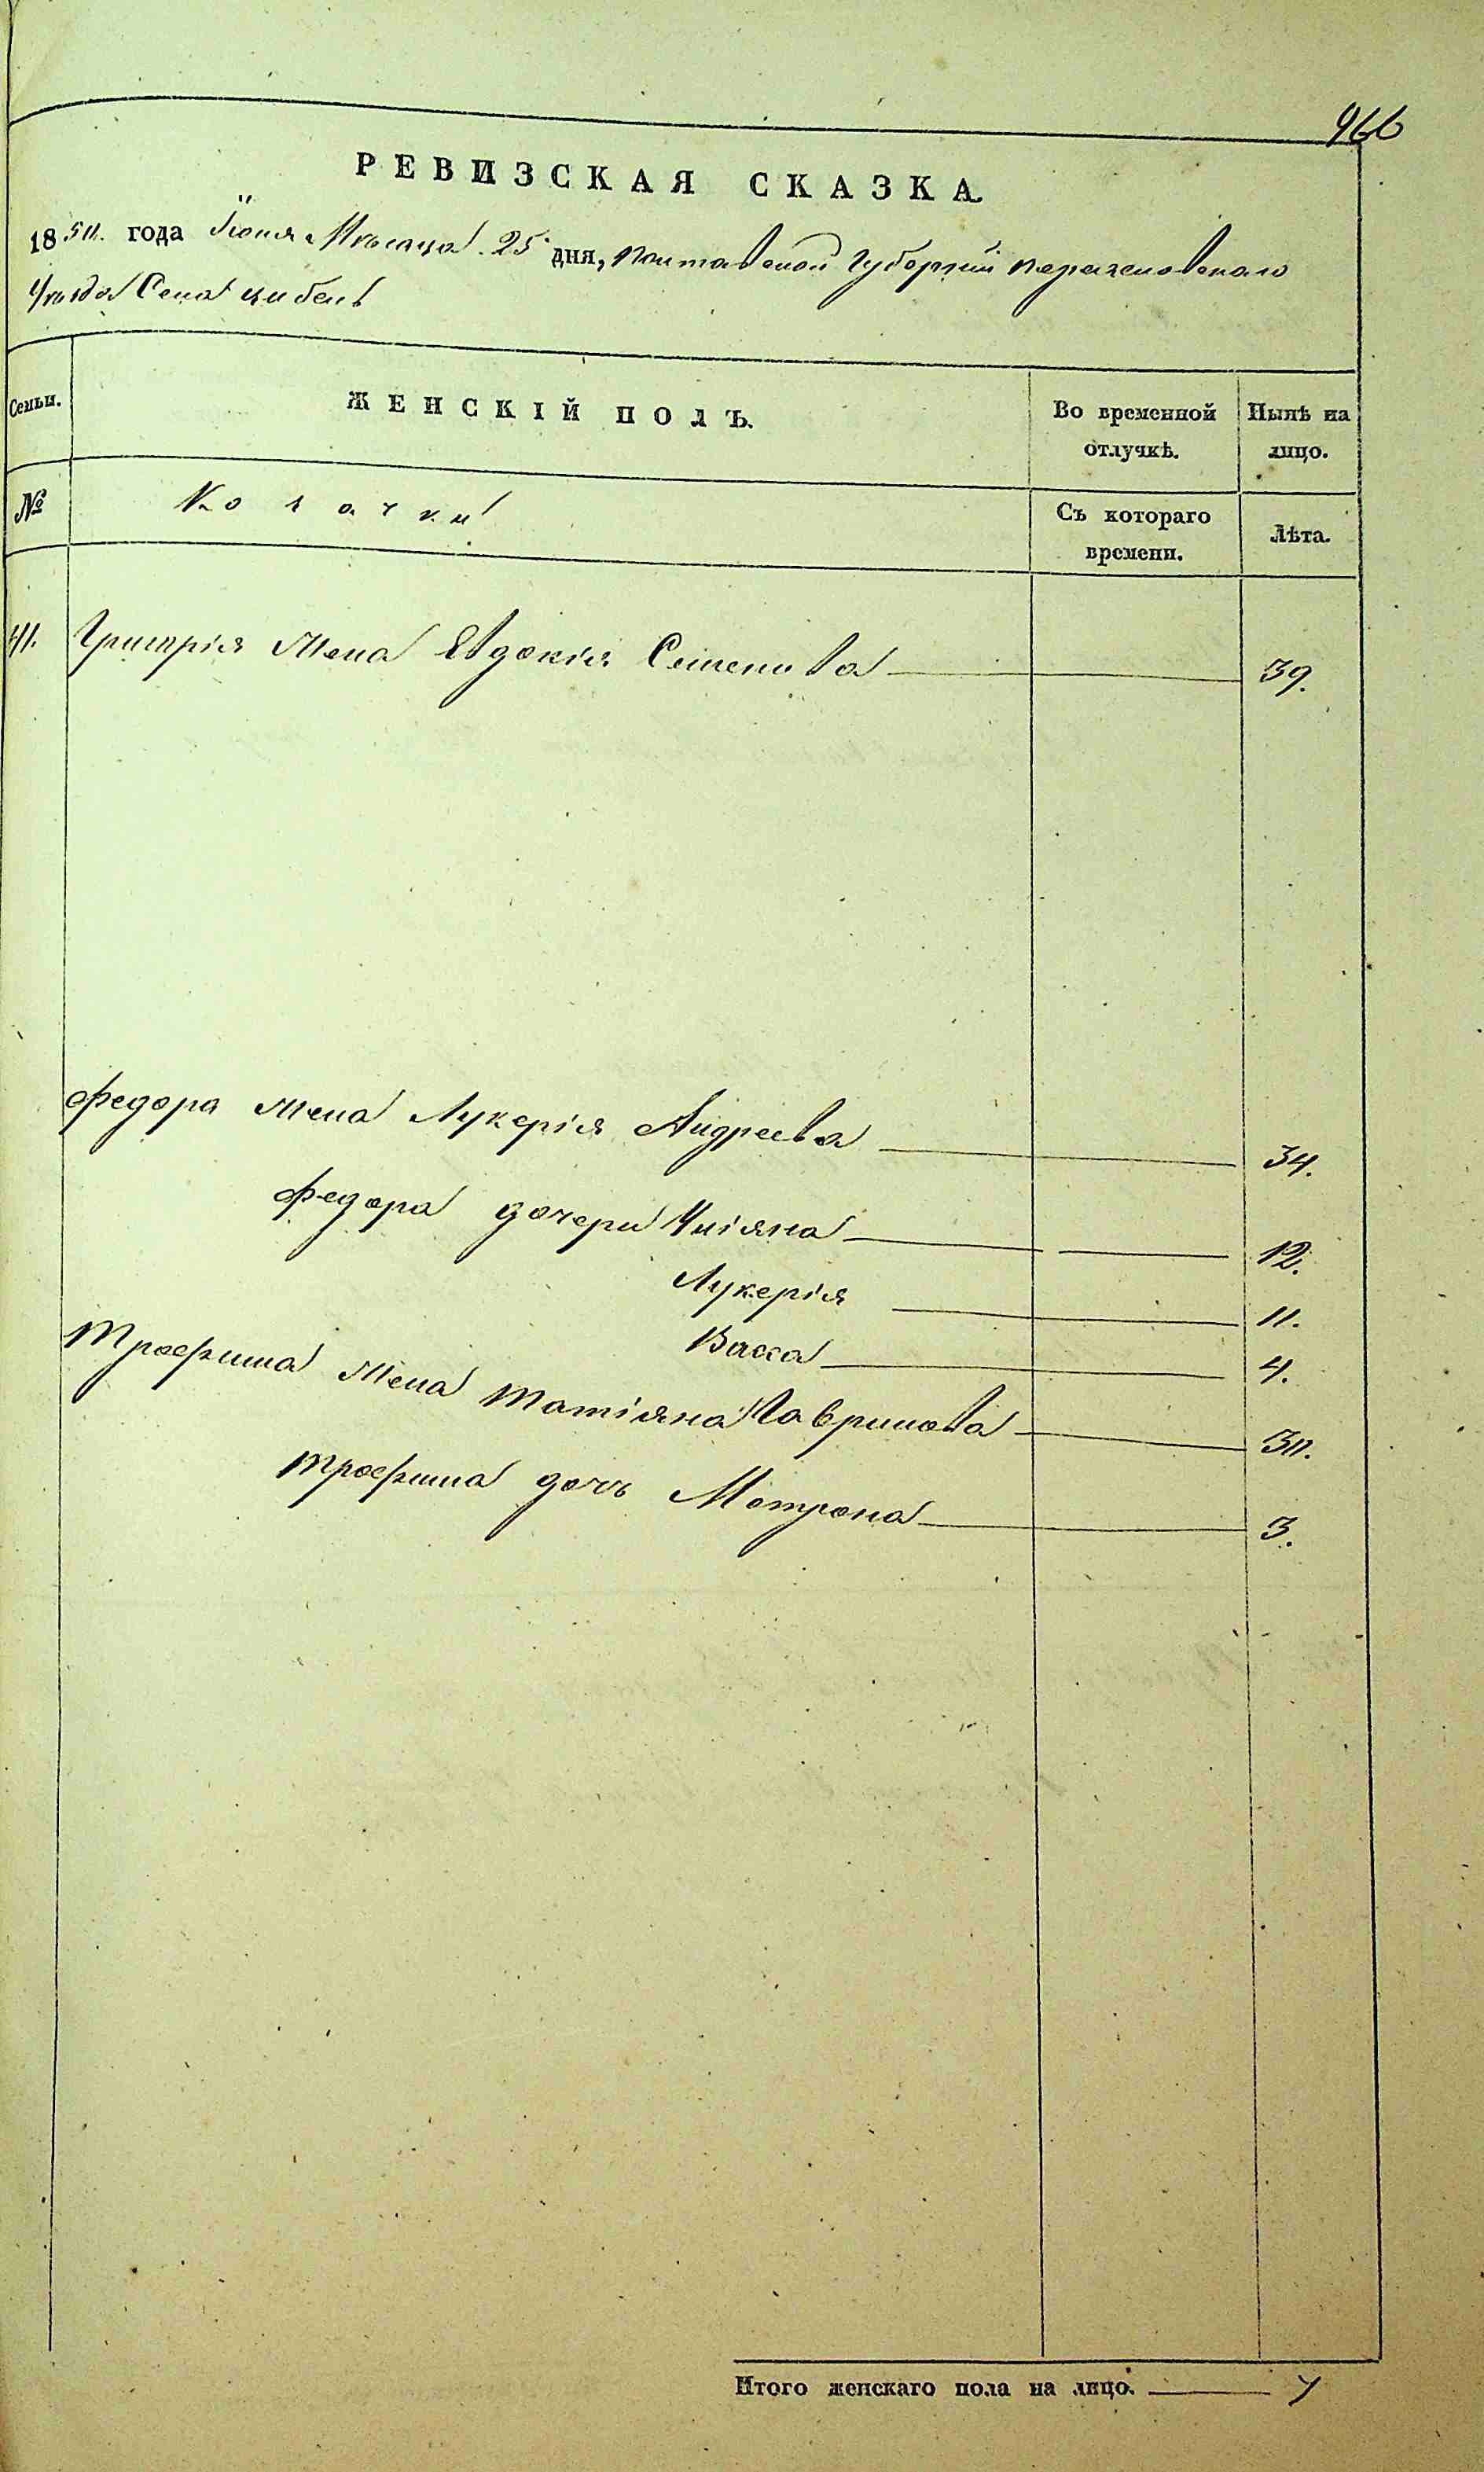 966
РЕВИЗСКАЯ СКАЗКА
1850. года Іюня Мѣсяца 25 дня, Полтавской Губерніи Переяславскаго
Уѣзда Села Цибель
Семьи. ЖЕНСКІЙ ПОЛЪ. Во временной отлучкѣ. Нынѣ на лицо.
№ Козачки Съ котораго времени. Лѣта.
41. Григорія Жена Евдокія Семенова 39.
Федора жена Лукерія Андреева 34.
Федора дочери Уліяна 12.
Лукерія 11.
Васса 4.
Трофима Жена Татіяна Гаврилова 30.
Трофима дочь Мотрона 3.
Итого женскаго пола на лицо. 7